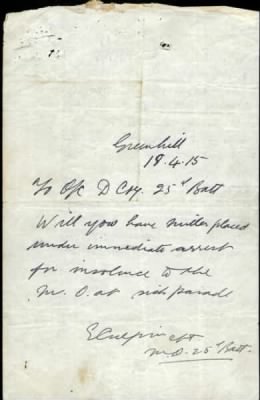 Greenhill
18.4.15
To O/c D Coy. 25th Batt
Will you have placed
under immediate arrest
for insolence to the
M.O. at sick parade
M.O. 25th Batt.